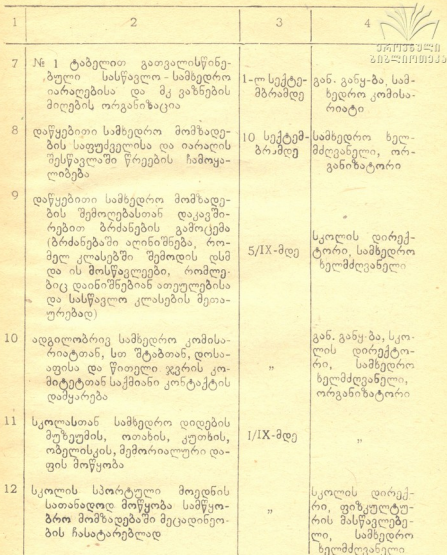 1 2 3 4
ეროვნული
ბიბლიოთეკა
7 № 1 ტაბელით გათვალისწინე-
ბული სასწავლო-სამხედრო
იარაღებისა და მკ ვაზნების
მიღების ორგანიზაცია
1-ლ სექტე-
მბრამდე
გან. განყ-ბა, სამ-
ხედრო კომისა-
რიატი
8 დაწყებითი სამხედრო მომზადე-
ბის საფუძველისა და იარაღის
შესწავლაში წრეების ჩამოყა-
ლიბება
10 სექტემ-
ბრამდე
სამხედრო ხელ-
მძღვანელი, ორ-
განიზატორი
9 დაწყებითი სამხედრო მომზადე-
ბის შემოღებასთან დაკავში-
რებით ბრძანების გამოცემა
(ბრძანებაში აღინიშნება, რო-
მელ კლასებში შემოდის დსმ
და ის მოსწავლეები, რომლე-
ბიც დაინიშნებიან ათეულებისა
და სასწავლო კლასების მეთა-
ურებად)
5/IX-მდე
სკოლის დირექ-
ტორი, სამხედრო
ხელმძღვანელი
10 ადგილობრივ სამხედრო კომისა-
რიატთან, სთ შტაბთან, დოსა-
აფისა და წითელი ჯვრის კო-
მიტეტთან საქმიანი კონტაქტის
დამყარება
„
გან. განყ-ბა, სკო-
ლის დირექტო-
რი, სამხედრო
ხელმძღვანელი,
ორგანიზატორი
11 სკოლასთან სამხედრო დიდების
მუზეუმის, ოთახის, კუთხის,
ობელისკის, მემორიალური და-
ფის მოწყობა
I/IX-მდე
„
12 სკოლის სპორტული მოედნის
სათანადოდ მოწყობა სამწყო-
ბრო მომზადებაში მეცადინეო-
ბის ჩასატარებლად
„
სკოლის დირექ-
რი, ფიზკულტუ-
რის მასწავლებე-
ლი, სამხედრო
ხელმძღვანელი